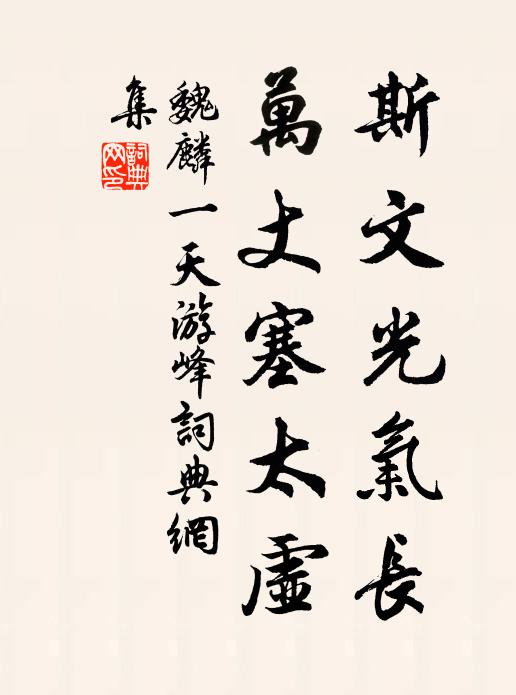 斯文光氣長
萬丈塞太虛
魏麟一天游峰詞典網
集
詞典
网印